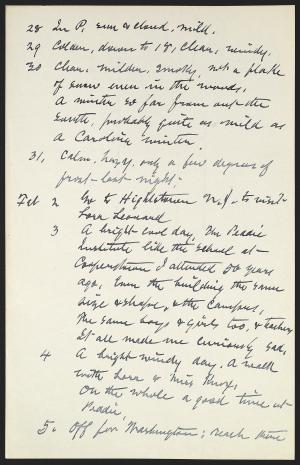 28 In P. sun & cloud, mild.
29 Colder, down to 18, clear, windy.
30 Clear, milder, smoky, not a flake
of snow even in the woods.
A winter so far from out the
South, probably quite as mild as
a Carolina winter.
31, Calm, hazy, only a few degrees of
frost last night.
Feb 2 Go to Hightstown N.J. to visit
Leonard
3 A bright cool day, The Peddie
Institute like the school at
Cooperstown I attended 50 years
ago. Even the building the same
size & shape, & the campus,
the same boys & girls too, & teachers
It all made me curiously sad,
4 A bright windy day. A walk
with & Miss Knox,
On the whole a good time at
Peddie,
5. Off for Washington; reach there